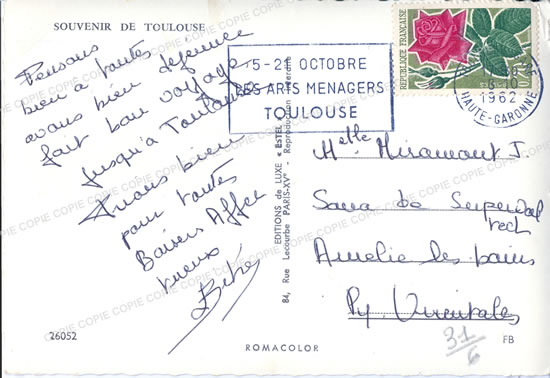 SOUVENIR DE TOULOUSE
Pensons
bien à toutes
avons bien déjeuner
fait bon voyage
jusqu'à Toulouse
bien
pour toutes
Baisers Affec
tueux
26052
EDITIONS de LUXE « ESTEL » - Reproduction interdite
84, Rue Lecourbe PARIS-XVᵉ
ROMACOLOR
5-21 OCTOBRE
DES ARTS MENAGERS
TOULOUSE
REPUBLIQUE FRANÇAISE
1962
HAUTE-GARONNE
Melle Miramont J.
Sana de
Amélie les bains
Py. Orientales
31/6
FB
COPIE COPIE COPIE COPIE COPIE COPIE